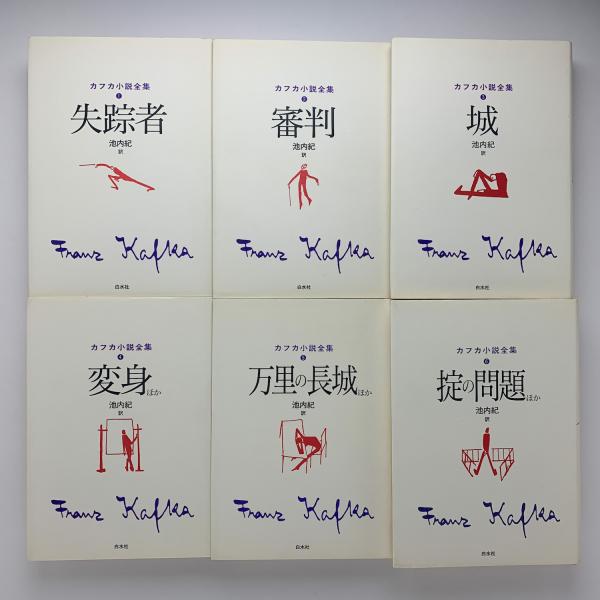 カフカ小説全集
1
失踪者
池内紀
訳
Franz Kafka
白水社
カフカ小説全集
2
審判
池内紀
訳
Franz Kafka
白水社
カフカ小説全集
3
城
池内紀
訳
Franz Kafka
白水社
カフカ小説全集
4
変身ほか
池内紀
訳
Franz Kafka
白水社
カフカ小説全集
5
万里の長城ほか
池内紀
訳
Franz Kafka
白水社
カフカ小説全集
6
掟の問題ほか
池内紀
訳
Franz Kafka
白水社